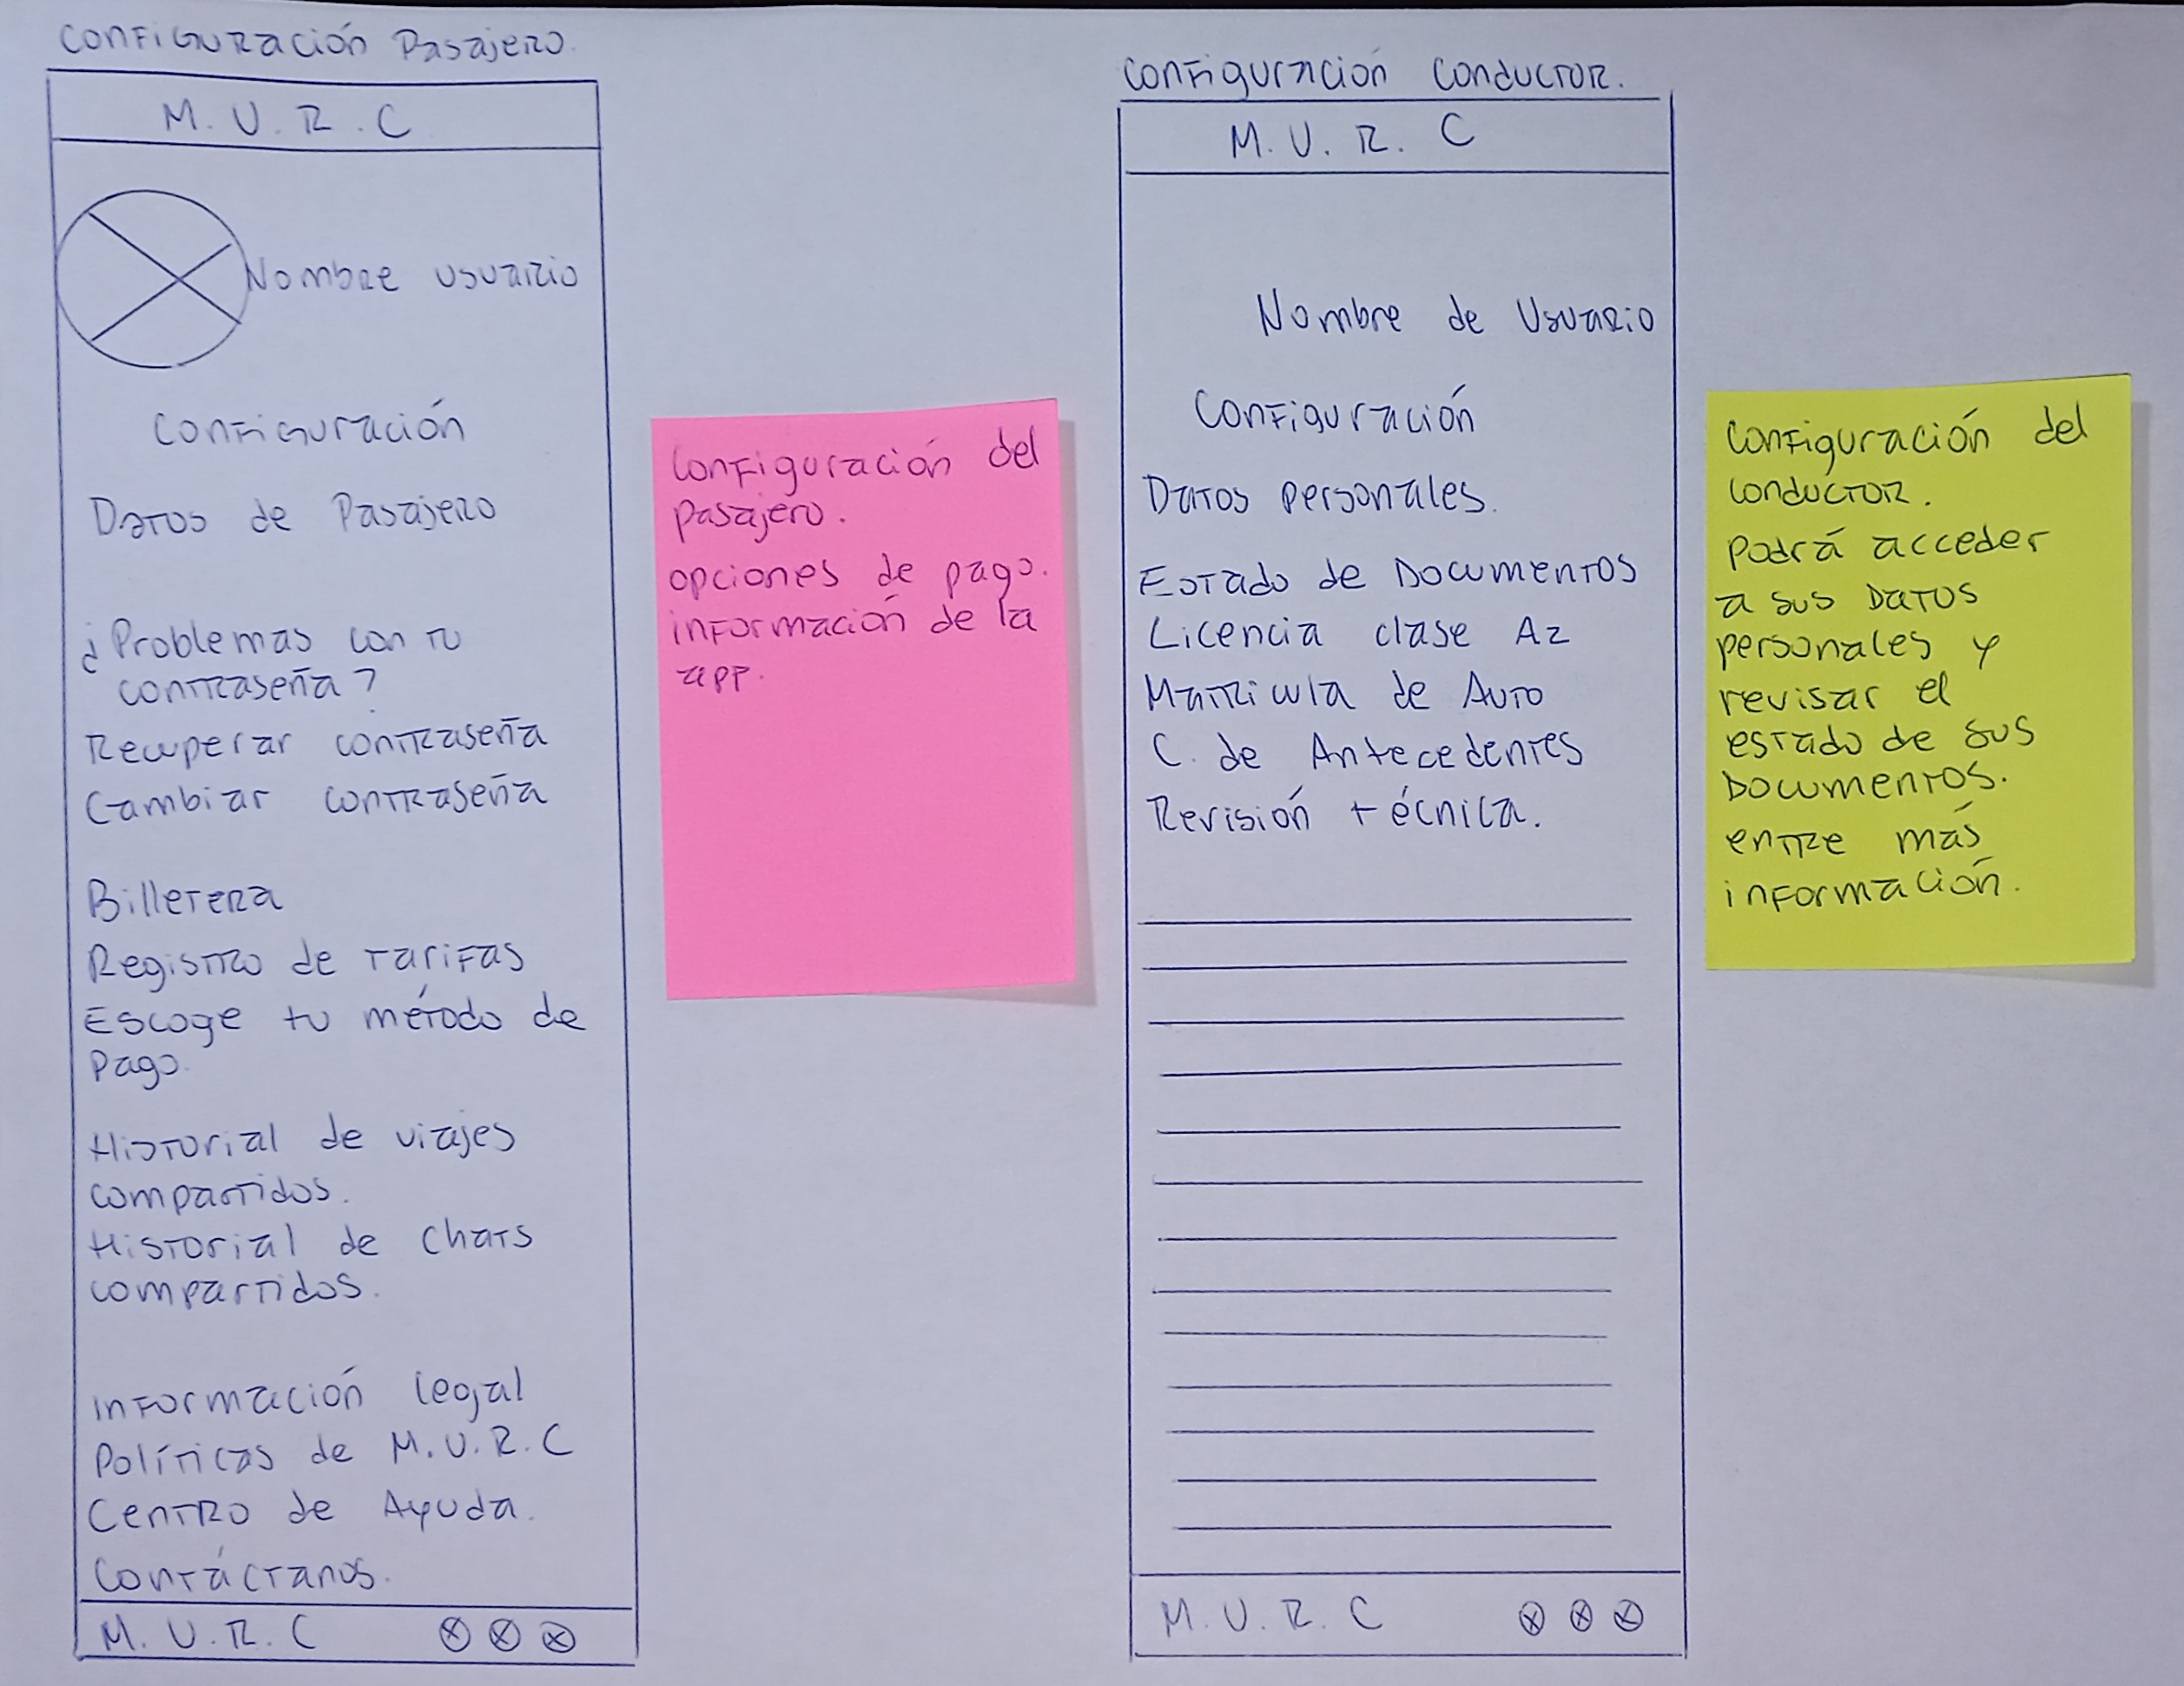 Configuración Pasajero.
M. U. R. C
Nombre usuario
Configuración
Datos de Pasajero
¿Problemas con tu
contraseña?
Recuperar contraseña
Cambiar contraseña
Billetera
Registro de tarifas
Escoge tu método de
Pago.
Historial de viajes
compartidos.
Historial de Chats
compartidos.
Información legal
Políticas de M.U.R.C
Centro de Ayuda.
Contáctanos.
M. U. R. C
Configuración del
pasajero.
opciones de pago.
información de la
app.
Configuración Conductor.
M. U. R. C
Nombre de Usuario
Configuración
Datos personales.
Estado de Documentos
Licencia clase A2
Matricula de Auto
C. de Antecedentes
Revisión técnica.
M. U. R. C
Configuración del
conductor.
podrá acceder
a sus Datos
personales y
revisar el
estado de sus
Documentos.
entre más
información.